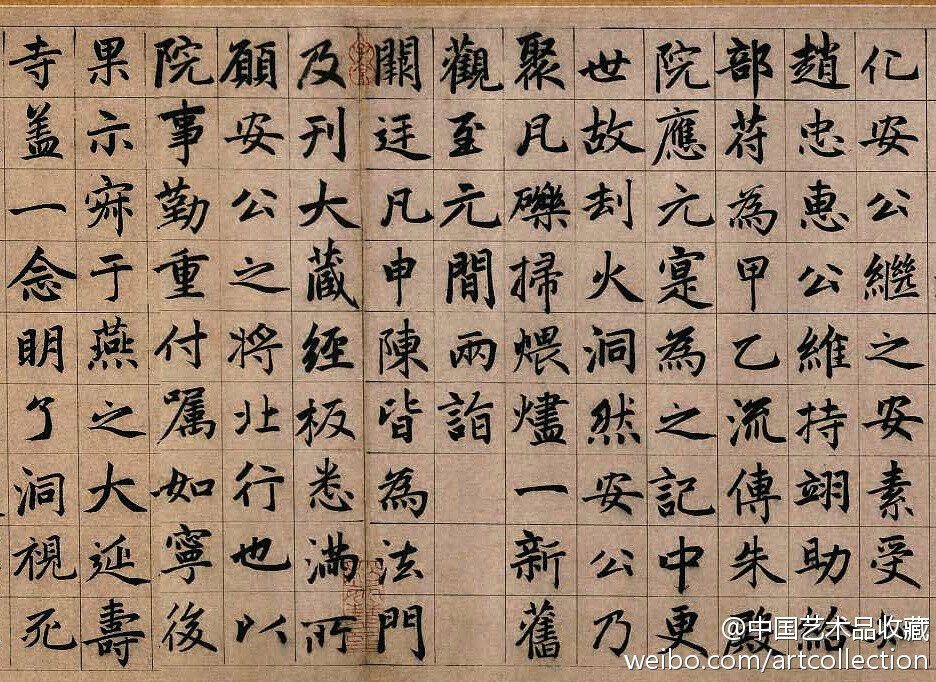 化安公繼之安素受
趙忠惠公維持翊助給
部符為甲乙流傳朱殿
院應元寔為之記中更
世故刦火洞然安公乃
聚凡礫掃煨燼一新舊
觀至元間兩詣
闕廷凡申陳皆為法門
及刊大藏經板悉滿所
願安公之將北行也以
院事勤重付嘱如寧後
果示寂于燕之大延壽
寺盖一念明了洞視死
@中国艺术品收藏
weibo.com/artcollection